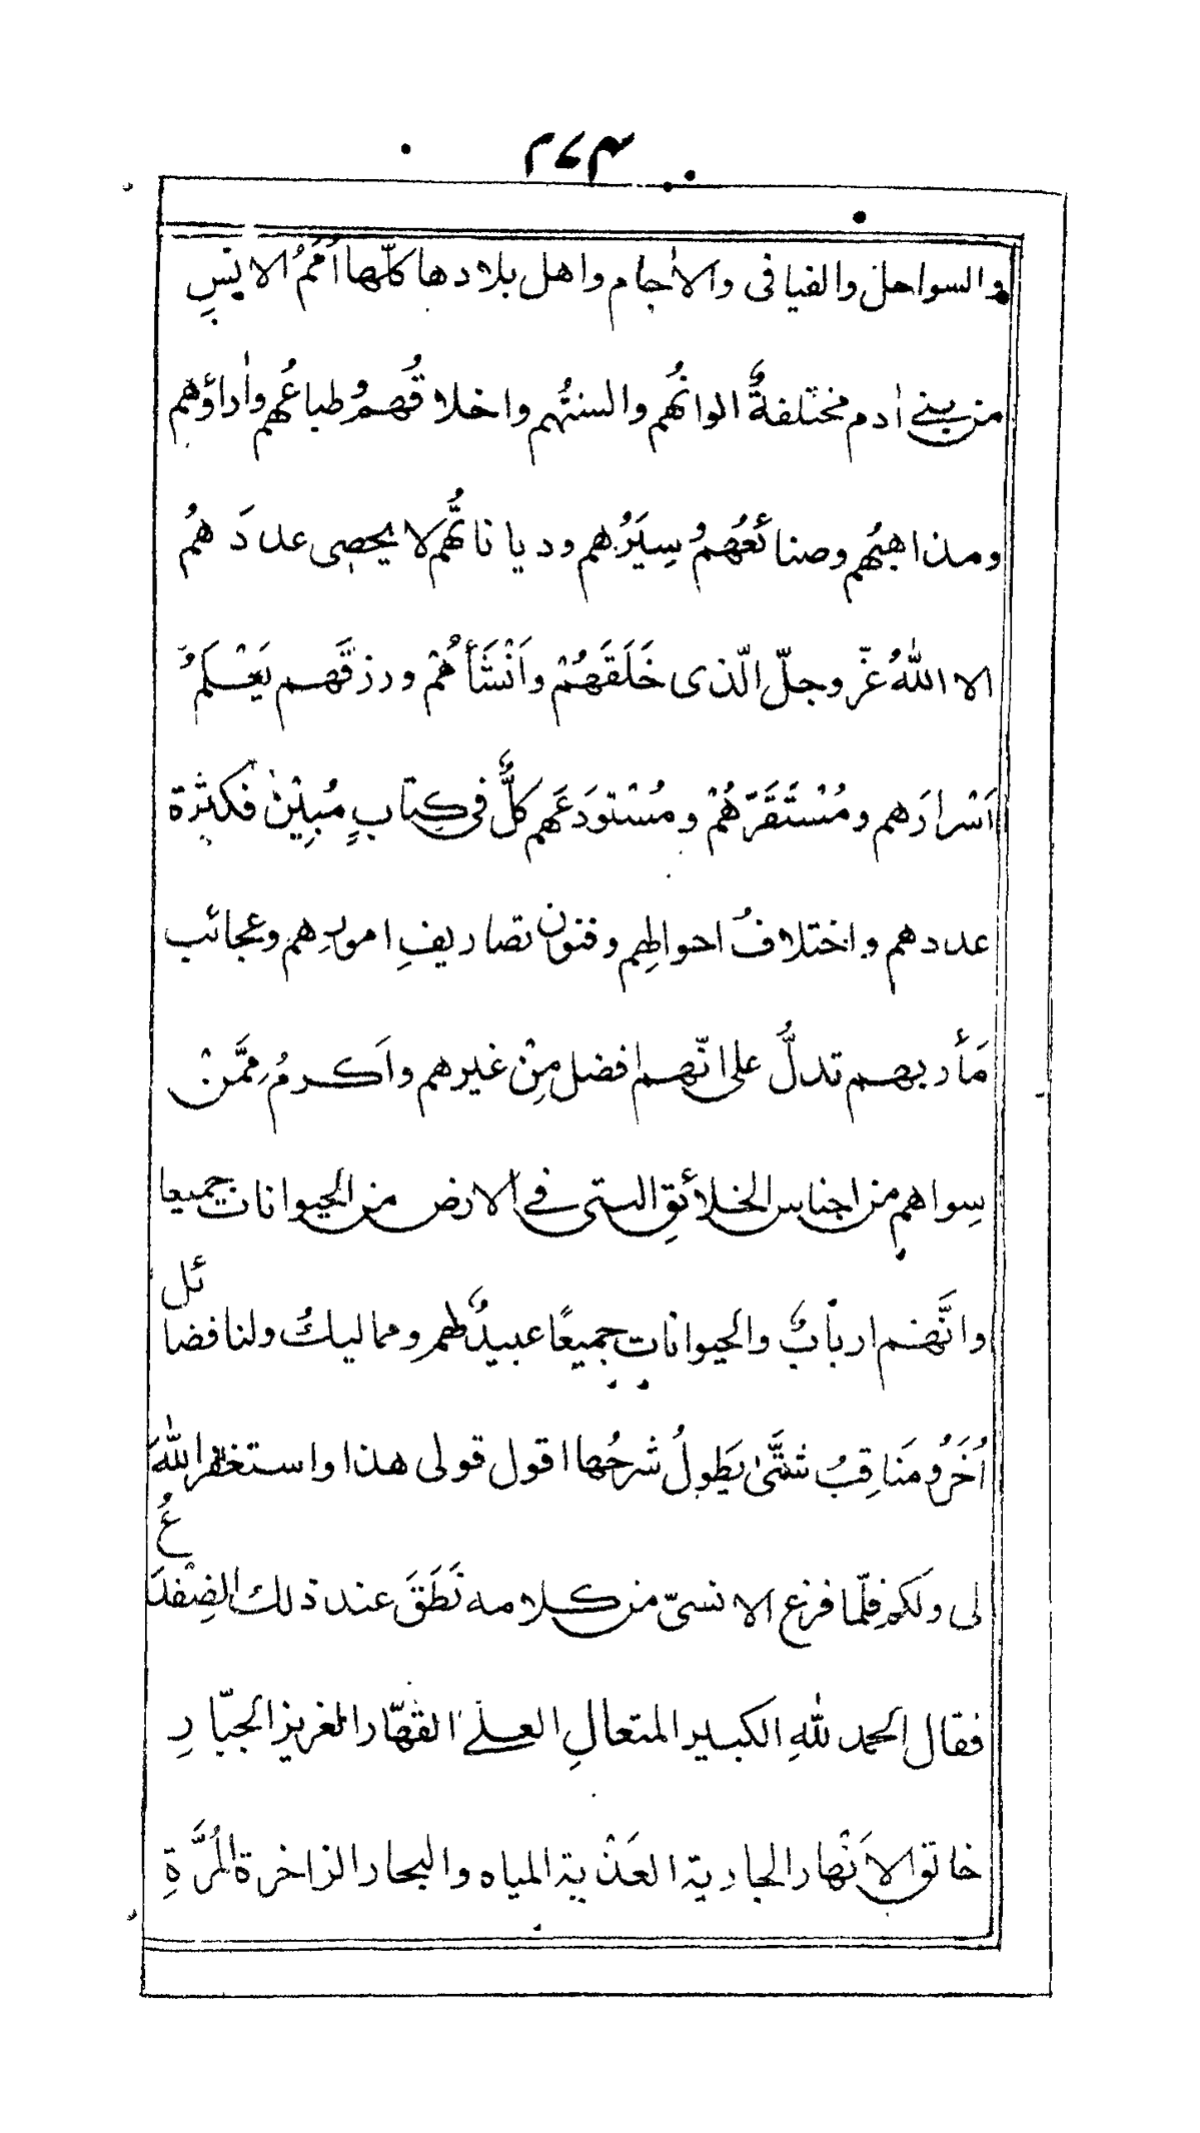 ٢٧٣
والسواحل والفيافى والاٰجام واهل بلادها كلّها اُمَمُ الانسِ
من بنے اٰدم مختلفةٌ الوانُهم والسنتُهم واخلاقُهم وُطباعُهم واٰداؤهم
ومذاهبُهم وصنائعُهم وُسِيَرُهم ودياناتُهم لا يحصى عددَهمُ
الا اللهُ عَزّ وجلّ الّذى خَلَقَهُمْ واَنْشَأهُمْ ورزقَهم يَعْلَمُ
اَسْرارَهم ومُسْتَقَرَّهُمْ ومُسْتودَعَهم كلٌّ فى كِتابٍ مُبِيْن فكثرة
عددهم واختلافُ احوالِهم وفنون تصاريفِ امورِهم وعجائب
مَأربهم تدلُّ على انّهم افضل مِنْ غيرهم واَكرمُ مِمَّنْ
سِواهم من اجناس الخلائقِ التى فے الارض من الحيوانات جميعا
وانَّهم اربابٌ والحيوانات جميعًا عبيدٌ لهم ومماليكُ ولنا فضائل
اُخَرُ ومَناقِبُ شتَّىٰ يَطولُ شرحُها اقول قولى هذا واستغفر اللهَ
لى ولكم فلمّا فرغ الانسىّ من كلامه نَطَقَ عند ذلك الضِفْدَعُ
فقال الحمد للهِ الكبير المتعالِ العلےِ القهّار العزيز الجبّارِ
خالق الاَنْهار الجارية العَذْبة المياه والبحار الزاخرة المُرَّةِ